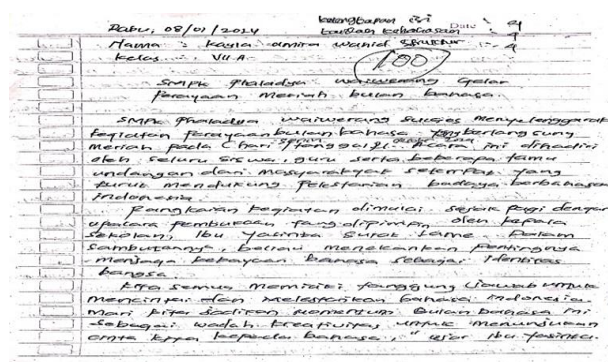 kelengkapan isi : 4
Date
Rabu, 08/01/2024 kaidah kebahasaan : 4
Nama : Kayla amira wahid struktur : 4
Kelas : VII A
100
SMPK Phaladya waiwerang Gelar
perayaan Meriah bulan bahasa.
SMPK Phaladya waiwerang sukses menyelenggarak
kegiatan perayaan bulan bahasa yang berlangsung
meriah pada (hari senin tanggal). Acara ini dihadiri
oleh seluru siswa, guru serta beberapa tamu
undangan dari masyarakat setempat yang
turut mendukung pelestarian budaya berbahasa
indonesia.
Rangkaian kegiatan dimulai sejak pagi dengan
upacara pembukaan yang dipimpin oleh kepala
sekolah, Ibu Yasinta Surat Lame. Dalam
sambutannya, beliau menekankan pentingnya
menjaga kekayaan bahasa sebagai identitas
bangsa.
kita semua memiliki tanggung Jawab untuk
mencintai dan melestarikan bahasa indonesia.
mari kita Jadikan momentum bulan bahasa ini
sebagai wadah kreativitas untuk menunjukan
cinta kita kepada bahasa, " ujar Ibu Yasinta.